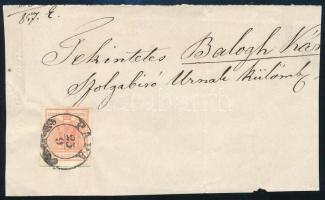 857. 2.
Tekintetes Balogh Ká
Szolgabiró Urnak külömb
PÁPA